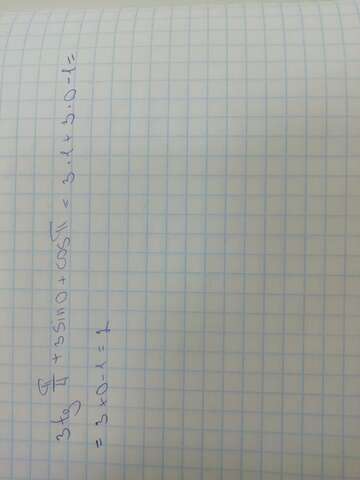 3tg π/4 + 3sin0 + cosπ = 3·1 + 3·0 - 1 =
= 3 + 0 - 1 = 2